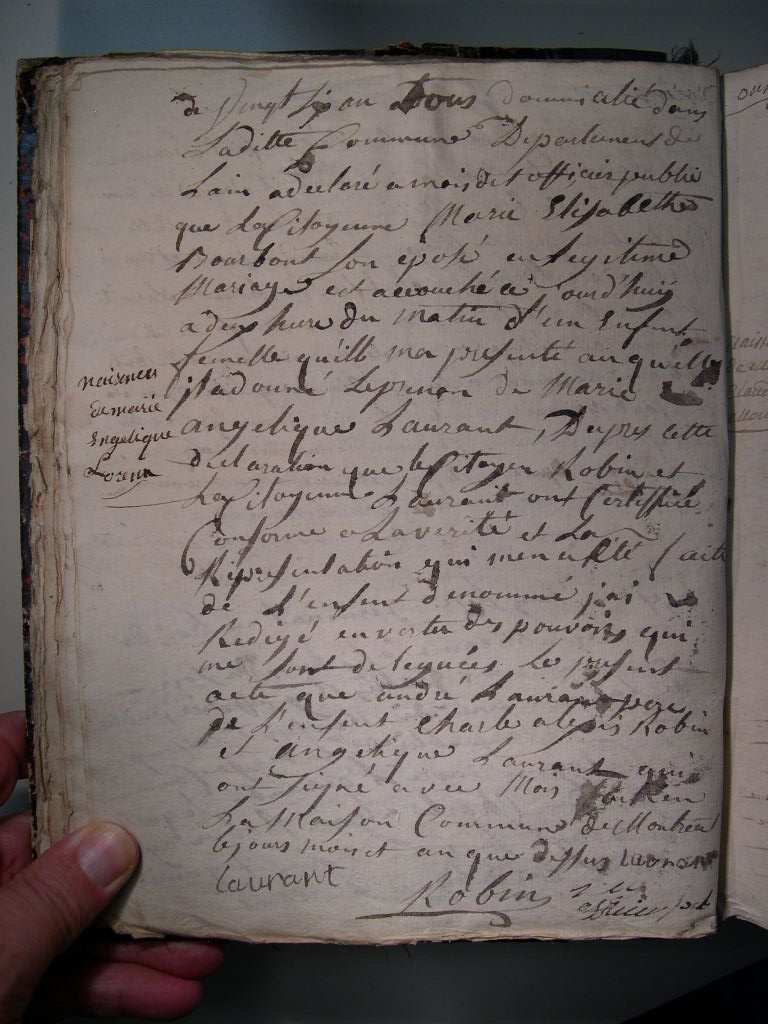 de vingt six an Tous domicilié dans
Laditte Commune Departement de
Lain a declaré a mois dit officier publie
que La Citoyenne Marie Elisabethe
Bourbont son eposé en Legitime
Mariage est accouché ce jourd'huis
a deux hure du matin d'un Enfent
femelle quill ma presenté au quelle
il a donné Le prenon de Marie
angelique Laurant, Depres cette
declaration que le Citoyen Robin et
La Citoyenne Laurant ont Certiffiée
Conforme a La verité et La
Representation qui men a été faite
de L'enfent denommé j'ai
Redigé en vertu des pouvoirs qui
me sont deleguées Le present
acte que andré Laurant pere
de L'enfent Charle alexis Robin
et angelique Laurant qui
ont signé avec Mois fait en
La Maison Commune de Montreal
le jours mois et an que dessus Laurant
Laurant
Robin
naisance
de marie
Engelique
Loran